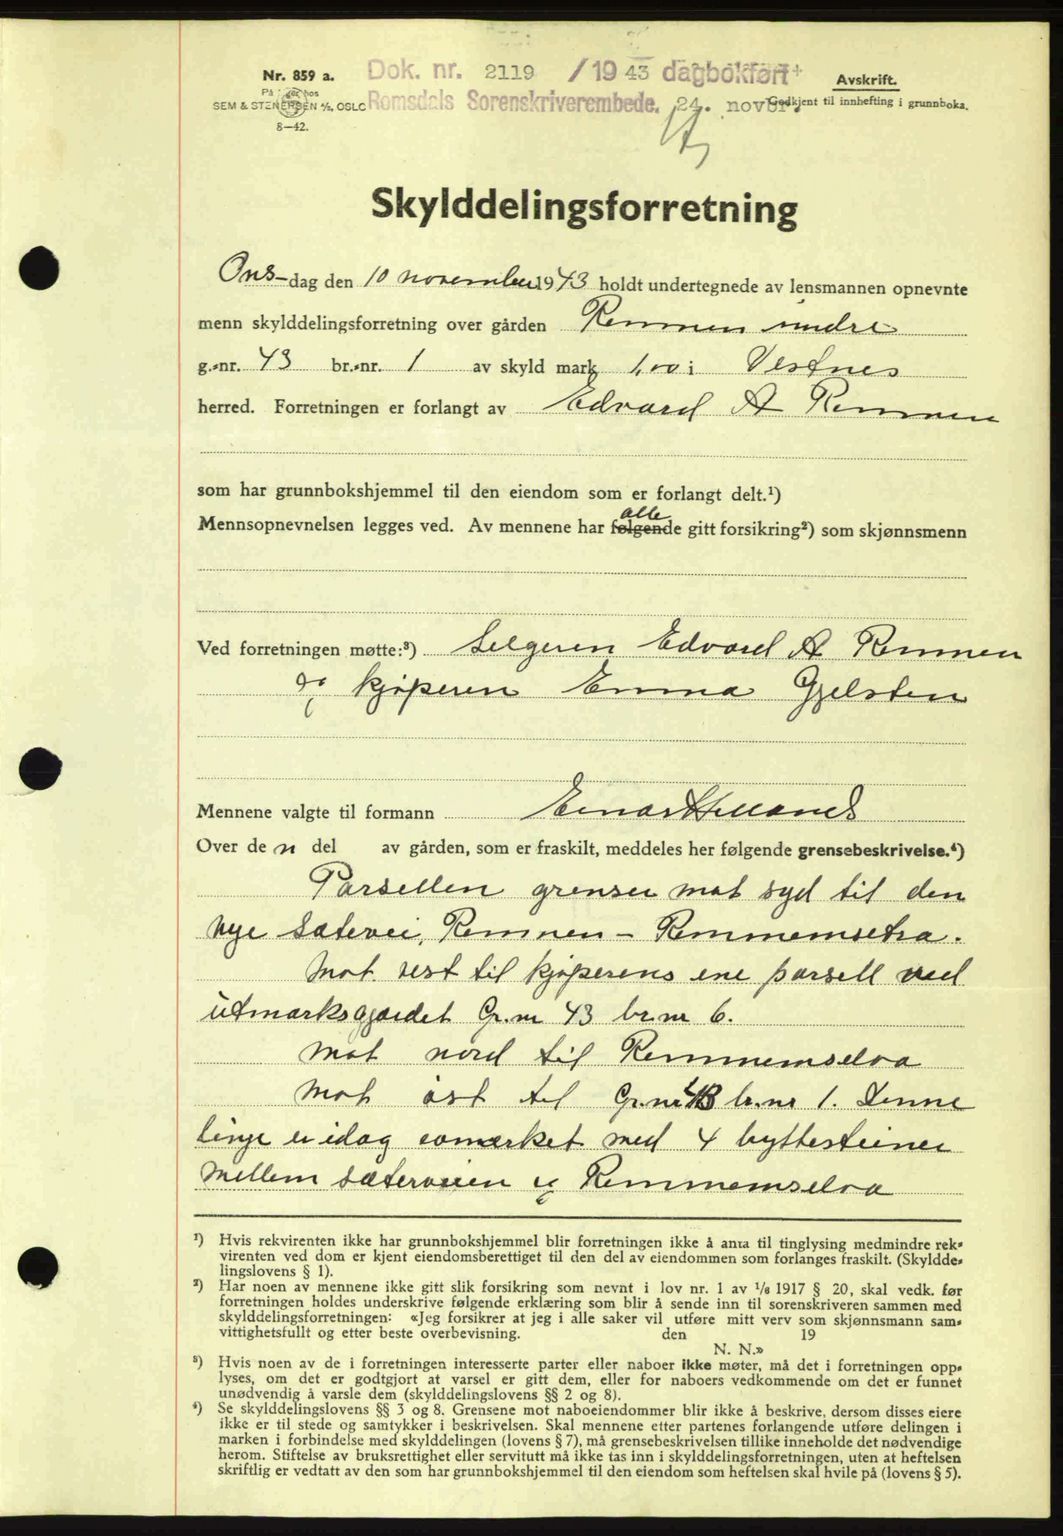 Nr. 859 a.
SEM & STENERSEN A/S, OSLO
8—42.
Dok. nr. 2119 /1943 dagbokført
Romsdals Sorenskriverembede. 24. novbr.
Avskrift.
Godkjent til innhefting i grunnboka.
Skylddelingsforretning
Ons-dag den 10 november 1943 holdt undertegnede av lensmannen opnevnte
menn skylddelingsforretning over gården Remmen indre
g.-nr. 43 br.-nr. 1 av skyld mark 1,00 i Vestnes
herred. Forretningen er forlangt av Edvard A Remmen
som har grunnbokshjemmel til den eiendom som er forlangt delt.¹)
alle
Mennsopnevnelsen legges ved. Av mennene har følgende gitt forsikring²) som skjønnsmenn
Ved forretningen møtte:³) Selgeren Edvard A Remmen
og kjøperen Emma Gjelsten
Mennene valgte til formann Einar Helland
Over de n del av gården, som er fraskilt, meddeles her følgende grensebeskrivelse.⁴)
Parsellen grenser mot syd til den
nye sætervei, Remmen – Remmemsetra.
Mot vest til kjøperens ene parsell ved
utmarksgjærdet Gr.nr 43 br.nr 6.
Mot nord til Remmemselva
Mot øst til Gr.nr 43 br.nr 1. Denne
linje er idag avmerket med 4 byttesteiner
mellem sæterveien og Remmemselva
¹) Hvis rekvirenten ikke har grunnbokshjemmel blir forretningen ikke å anta til tinglysing medmindre rek-
virenten ved dom er kjent eiendomsberettiget til den del av eiendommen som forlanges fraskilt. (Skyldde-
lingslovens § 1).
²) Har noen av mennene ikke gitt slik forsikring som nevnt i lov nr. 1 av 1/6 1917 § 20, skal vedk. før
forretningen holdes underskrive følgende erklæring som blir å sende inn til sorenskriveren sammen med
skylddelingsforretningen: «Jeg forsikrer at jeg i alle saker vil utføre mitt verv som skjønnsmann sam-
vittighetsfullt og etter beste overbevisning. den 19
N. N.»
³) Hvis noen av de i forretningen interesserte parter eller naboer ikke møter, må det i forretningen opp-
lyses, om det er godtgjort at varsel er gitt dem, eller for naboers vedkommende om det er funnet
unødvendig å varsle dem (skylddelingslovens §§ 2 og 8).
⁴) Se skylddelingslovens §§ 3 og 8. Grensene mot naboeiendommer blir ikke å beskrive, dersom disses eiere
ikke er til stede og samtykker i beskrivelsen. Skal mennene etter partenes forlangende utføre delingen i
marken i forbindelse med skylddelingen (lovens § 7), må grensebeskrivelsen tillike inneholde det nødvendige
herom. Stiftelse av bruksrettighet eller servitutt må ikke tas inn i skylddelingsforretningen, uten at heftelsen
skriftlig er vedtatt av den som har grunnbokshjemmel til den eiendom som heftelsen skal hvile på (lovens § 5).